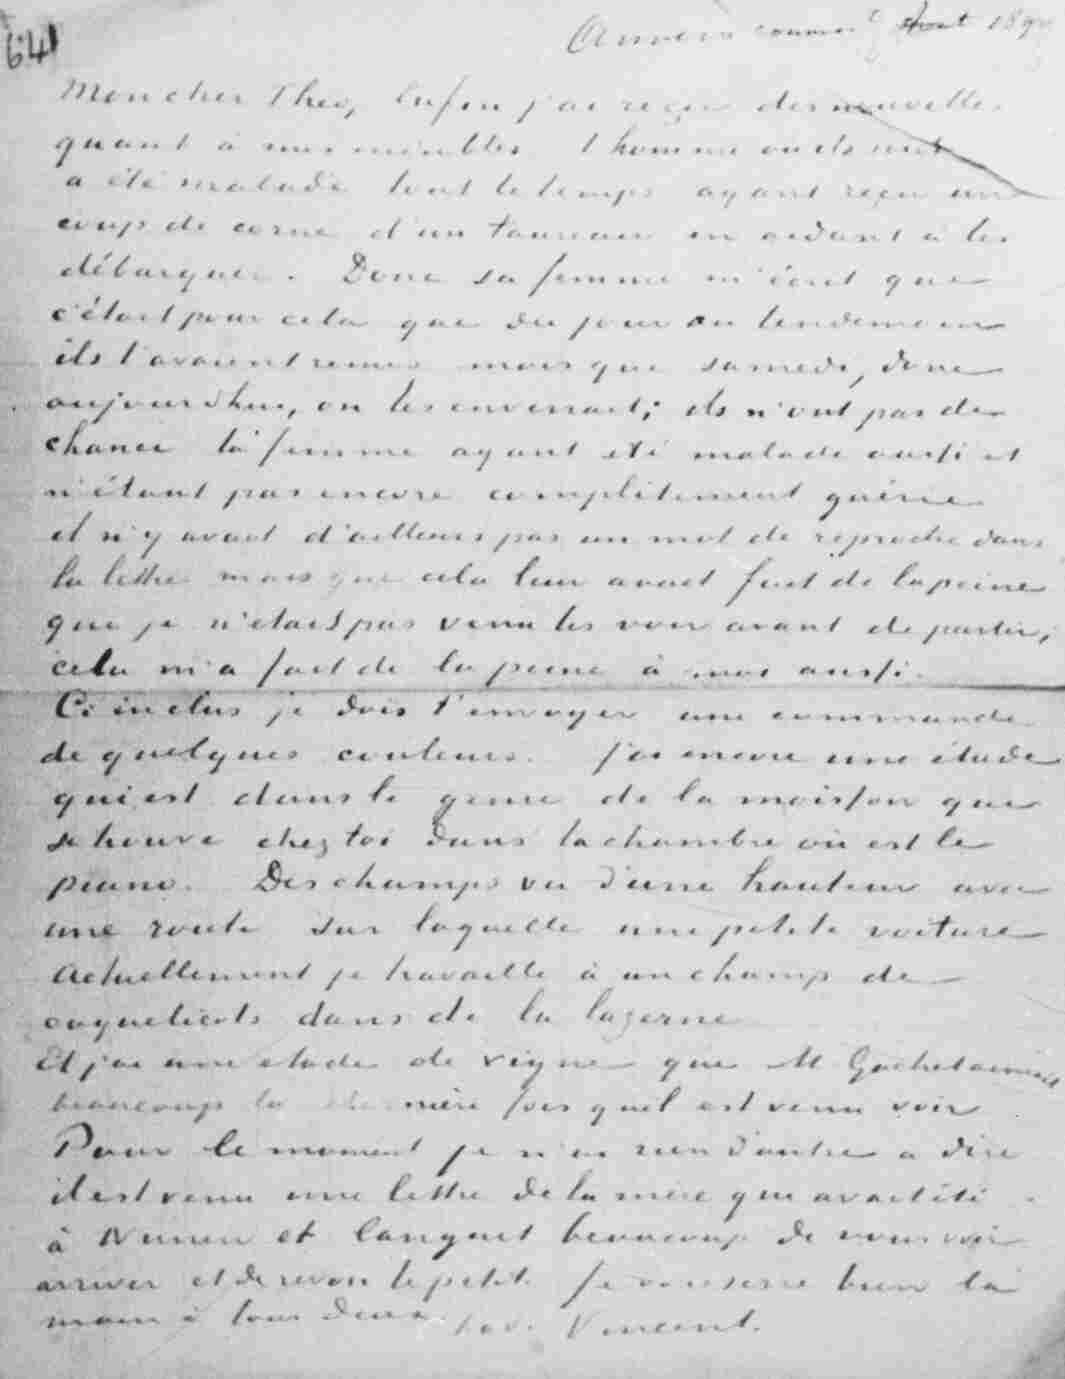 641
Auvers comm.t Aout 1890
Mon cher Theo, Enfin j'ai reçu des nouvelles
quant à mes meubles. l'homme où ils sont
a été malade tout le temps ayant reçu un
coup de corne d'un taureau en aidant à les
débarquer. Donc sa femme m'écrit que
c'était pour cela que du jour au lendemain
ils l'avaient remis mais que samedi, donc
aujourdhui, on les enverrait; ils n'ont pas de
chance la femme ayant été malade aussi et
n'étant pas encore complètement guérie
il n'y avait d'ailleurs pas un mot de reproche dans
la lettre mais que cela leur avait fait de la peine
que je n'etais pas venu les voir avant de partir;
cela m'a fait de la peine à moi aussi.
Ci inclus je dois t'envoyer une commande
de quelques couleurs. J'ai encore une étude
qui est dans le genre de la moisson que
se trouve chez toi dans la chambre où est le
piano. Des champs vu d'une hauteur avec
une route sur laquelle une petite voiture
Actuellement je travaille à un champ de
coquelicots dans de la luzerne
Et j'ai une etude de vigne que M Gachet aimait
beaucoup la dernière fois qu'il est venu voir
Pour le moment je n'ai rien d'autre a dire
il est venu une lettre de la mère qui avait été
à Nunen et languit beaucoup de vous voir
arriver et de revoir le petit. Je vous serre bien la
main à tous deux. Vincent.